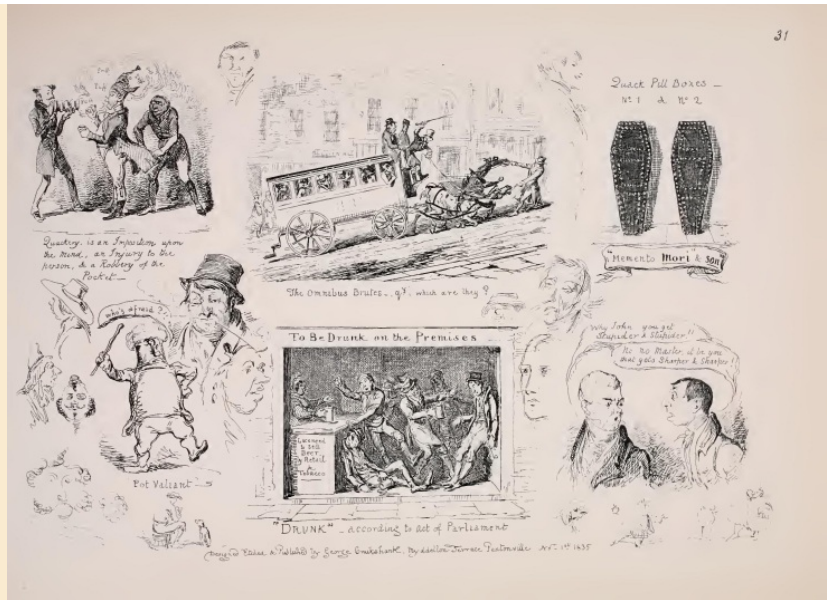 31
Quackery is an Imposition upon
the Mind, an Injury to the
person, & a Robbery of the
Pocket
The Omnibus Brutes - qy. which are they?
Quack Pill Boxes -
No 1 & No 2
"Memento Mori" & Son
who's afraid?
Pot Valiant
To Be Drunk on the Premises
Licensed
to sell
Beer
by Retail
&
Tobacco
"DRUNK" - according to act of Parliament
Why John you get
Stupider & Stupider!!
No no Master, it be you
that gets Sharper & Sharper!
Designed Etched & Published by George Cruikshank Myddelton Terrace Pentonville Nov. 1st 1835